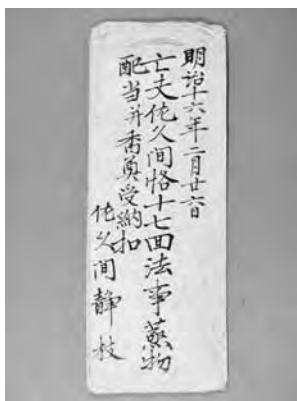 明治十六年二月廿六日
亡夫佐久間恪十七回法事蒸物
配当并香奠受納扣
佐久間静枝